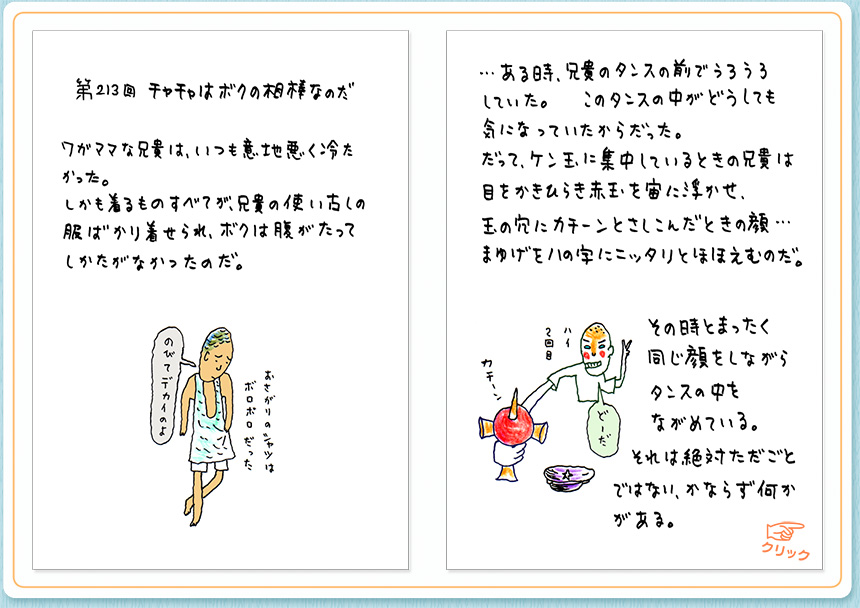 第213回 チャチャはボクの相棒なのだ
ワガママな兄貴は、いつも意地悪く冷た
かった。
しかも着るものすべてが、兄貴の使い古しの
服ばかり着せられ、ボクは腹がたって
しかたがなかったのだ。
のびてデカイのよ
おさがりのシャツは
ボロボロだった
…ある時、兄貴のタンスの前でうろうろ
していた。 このタンスの中がどうしても
気になっていたからだった。
だって、ケン玉に集中しているときの兄貴は
目をかきひらき赤玉を宙に浮かせ、
玉の穴にカチーンとさしこんだときの顔…
まゆげをハの字にニッタリとほほえむのだ。
ハイ
2回目
カチーン
どーだ
その時とまったく
同じ顔をしながら
タンスの中を
ながめている。
それは絶対ただごと
ではない、かならず何か
がある。
クリック